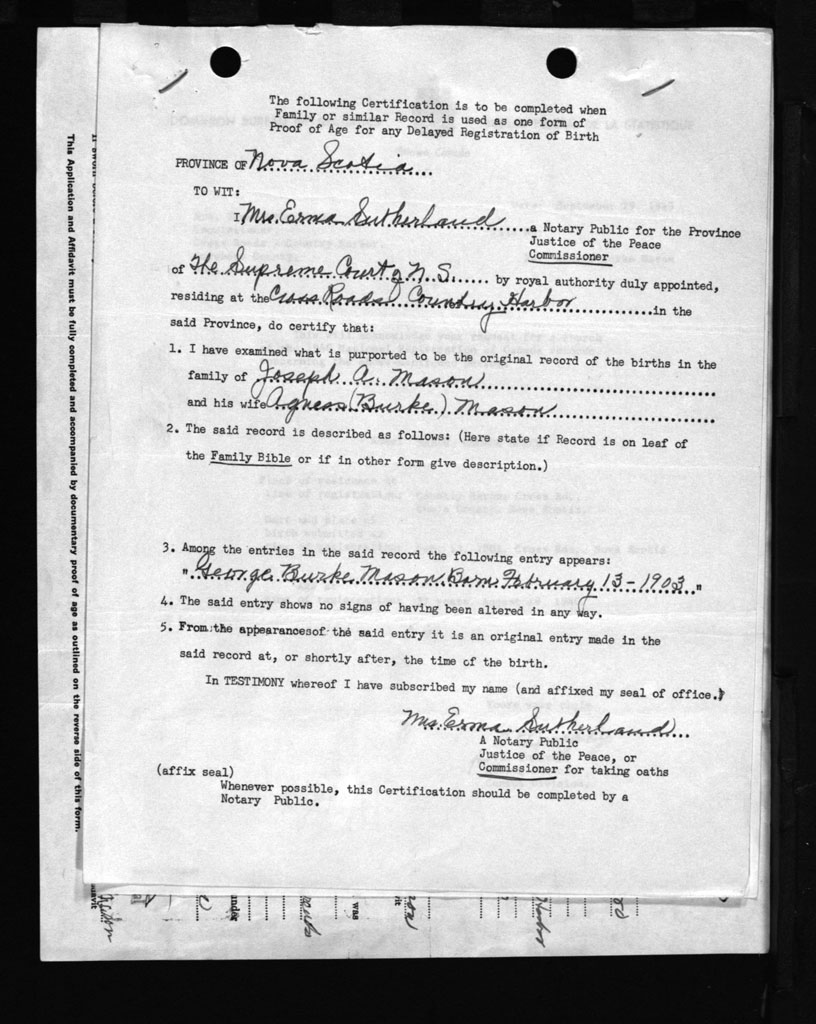 The following Certification is to be completed when
Family or similar Record is used as one form of
Proof of Age for any Delayed Registration of Birth
PROVINCE OF Nova Scotia
TO WIT:
I Mrs. Erma Sutherland a Notary Public for the Province
Justice of the Peace
Commissioner
of The Supreme Court of N.S. by royal authority duly appointed,
residing at the Cross Roads Country Harbor in the
said Province, do certify that:
1. I have examined what is purported to be the original record of the births in the
family of Joseph A. Mason
and his wife Agness (Burke) Mason
2. The said record is described as follows: (Here state if Record is on leaf of
the Family Bible or if in other form give description.)
3. Among the entries in the said record the following entry appears:
" George Burke Mason Born February 13-1903 "
4. The said entry shows no signs of having been altered in any way.
5. From the appearances of the said entry it is an original entry made in the
said record at, or shortly after, the time of the birth.
In TESTIMONY whereof I have subscribed my name (and affixed my seal of office.)
Mrs. Erma Sutherland
A Notary Public
Justice of the Peace, or
Commissioner for taking oaths
(affix seal)
Whenever possible, this Certification should be completed by a
Notary Public.
This Application and Affidavit must be fully completed and accompanied by documentary proof of age as outlined on the reverse side of this form.
under
was
Harbor